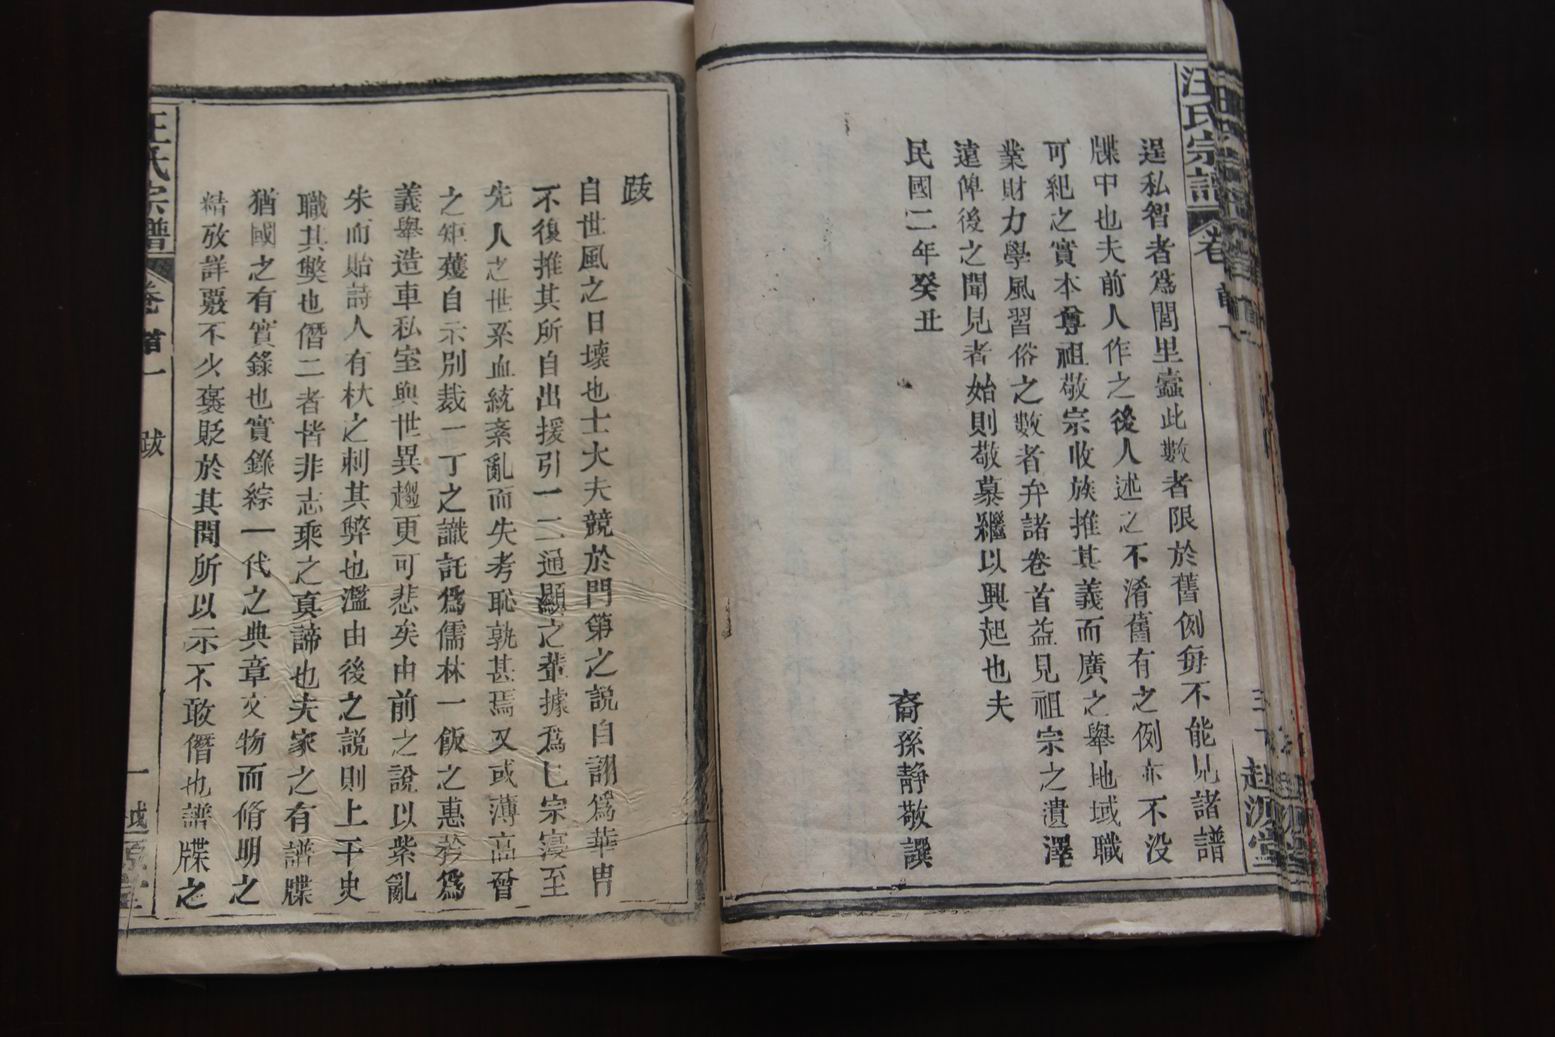 汪氏宗譜
卷首一
逞私智者爲閭里蠹此數者限於舊例每不能見諸譜
牒中也夫前人作之後人述之不淆舊有之例亦不没
可紀之實本尊祖敬宗收族推其義而廣之舉地域職
業財力學風習俗之數者弁諸卷首益見祖宗之遺澤
遠俾後之聞見者始則敬慕繼以興起也夫
民國二年癸丑
裔孫靜敬譔
跋
自世風之日壞也士大夫競於門第之説自詡爲華胄
不復推其所自出援引一二通顯之輩據爲己宗寖至
先人之世系血統紊亂而失考恥孰甚焉又或薄高曾
之矩矱自示別裁一丁之識託爲儒林一飯之惠矜爲
義舉造車私室與世異趨更可悲矣由前之說以紫亂
朱而貽詩人有杕之刺其弊也濫由後之説則上干史
職其獘也僭二者皆非志乘之真諦也夫家之有譜牒
猶國之有實錄也實錄綜一代之典章文物而脩明之
精攷詳覈不少褒貶於其間所以示不敢僭也譜牒之
汪氏宗譜
卷首一
跋
一